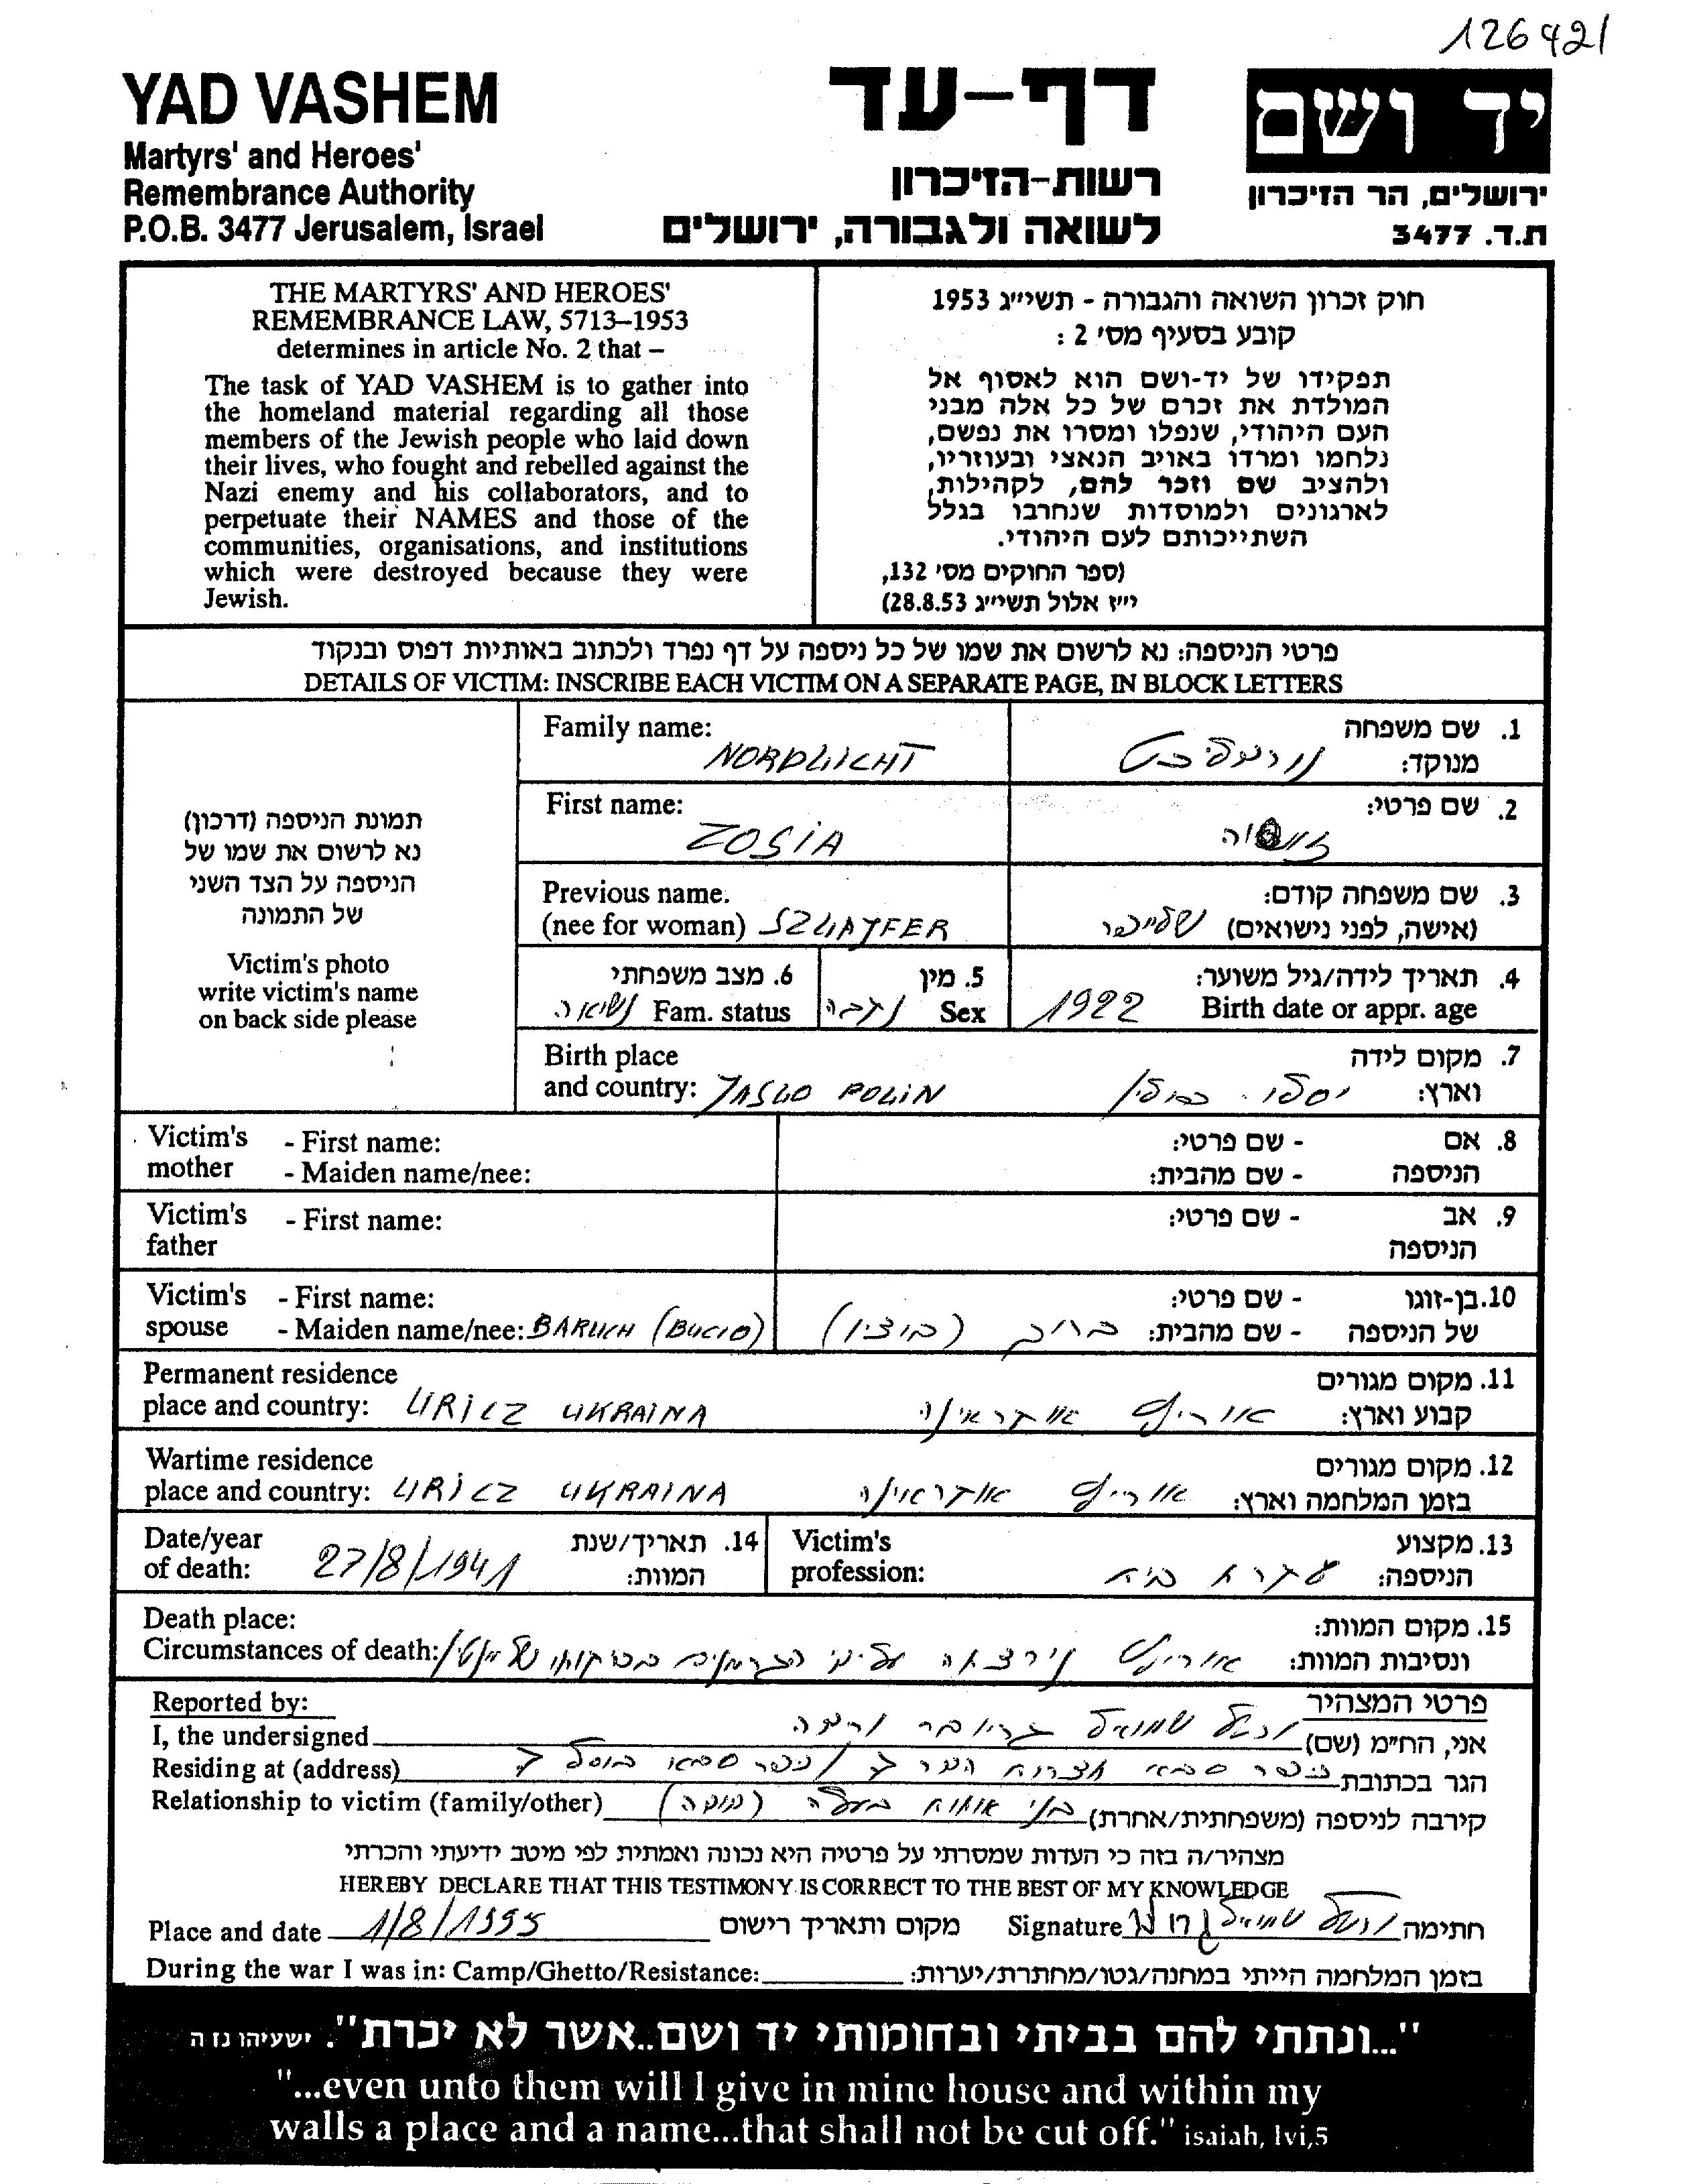 126421
YAD VASHEM
Martyrs' and Heroes'
Remembrance Authority
P.O.B. 3477 Jerusalem, Israel
דף-עד
רשות-הזיכרון
לשואה ולגבורה, ירושלים
יד ושם
ירושלים, הר הזיכרון
ת.ד. 3477
THE MARTYRS' AND HEROES'
REMEMBRANCE LAW, 5713–1953
determines in article No. 2 that –
The task of YAD VASHEM is to gather into
the homeland material regarding all those
members of the Jewish people who laid down
their lives, who fought and rebelled against the
Nazi enemy and his collaborators, and to
perpetuate their NAMES and those of the
communities, organisations, and institutions
which were destroyed because they were
Jewish.
חוק זכרון השואה והגבורה - תשי״ג 1953
קובע בסעיף מס' 2 :
תפקידו של יד-ושם הוא לאסוף אל
המולדת את זכרם של כל אלה מבני
העם היהודי, שנפלו ומסרו את נפשם,
נלחמו ומרדו באויב הנאצי ובעוזריו,
ולהציב שם וזכר להם, לקהילות,
לארגונים ולמוסדות שנחרבו בגלל
השתייכותם לעם היהודי.
(ספר החוקים מס' 132,
י״ז אלול תשי״ג 28.8.53)
פרטי הניספה: נא לרשום את שמו של כל ניספה על דף נפרד ולכתוב באותיות דפוס ובנקוד
DETAILS OF VICTIM: INSCRIBE EACH VICTIM ON A SEPARATE PAGE, IN BLOCK LETTERS
תמונת הניספה (דרכון)
נא לרשום את שמו של
הניספה על הצד השני
של התמונה
Victim's photo
write victim's name
on back side please
Family name: NORDLICHT
1. שם משפחה מנוקד: נורדליכט
First name: ZOSIA
2. שם פרטי:
Previous name.
(nee for woman) SZLAJFER
3. שם משפחה קודם:
(אישה, לפני נישואים) שלייפר
6. מצב משפחתי
Fam. status נשואה
5. מין
Sex נקבה
4. תאריך לידה/גיל משוער:
Birth date or appr. age 1922
Birth place
and country: JASLO POLIN
7. מקום לידה
וארץ: יסלו פולין
Victim's mother - First name:
- Maiden name/nee:
8. אם הניספה - שם פרטי:
- שם מהבית:
Victim's father - First name:
9. אב הניספה - שם פרטי:
Victim's spouse - First name:
- Maiden name/nee: BARUCH (BUCIO)
10. בן-זוגו של הניספה - שם פרטי:
- שם מהבית: ברוך (בוציו)
Permanent residence
place and country: URICZ UKRAINA
11. מקום מגורים
קבוע וארץ: אוריץ אוקראינה
Wartime residence
place and country: URICZ UKRAINA
12. מקום מגורים
בזמן המלחמה וארץ: אוריץ אוקראינה
Date/year
of death: 27/8/1941
14. תאריך/שנת
המוות:
Victim's
profession:
13. מקצוע
הניספה: עקרת בית
Death place:
Circumstances of death:
15. מקום המוות:
ונסיבות המוות: אוריץ נירצחה על ידי הגרמנים
Reported by:
פרטי המצהיר
I, the undersigned
אני, הח״מ (שם) שמואל
Residing at (address)
הגר בכתובת כפר סבא
Relationship to victim (family/other)
קירבה לניספה (משפחתית/אחרת) בעלה
מצהיר/ה בזה כי העדות שמסרתי על פרטיה היא נכונה ואמתית לפי מיטב ידיעתי והכרתי
HEREBY DECLARE THAT THIS TESTIMONY IS CORRECT TO THE BEST OF MY KNOWLEDGE
Place and date 1/8/1995 מקום ותאריך רישום
Signature שמואל חתימה
During the war I was in: Camp/Ghetto/Resistance:
בזמן המלחמה הייתי במחנה/גטו/מחתרת/יערות:
"...ונתתי להם בביתי ובחומותי יד ושם..אשר לא יכרת". ישעיהו נז ה
"...even unto them will I give in mine house and within my
walls a place and a name...that shall not be cut off." isaiah, lvi,5